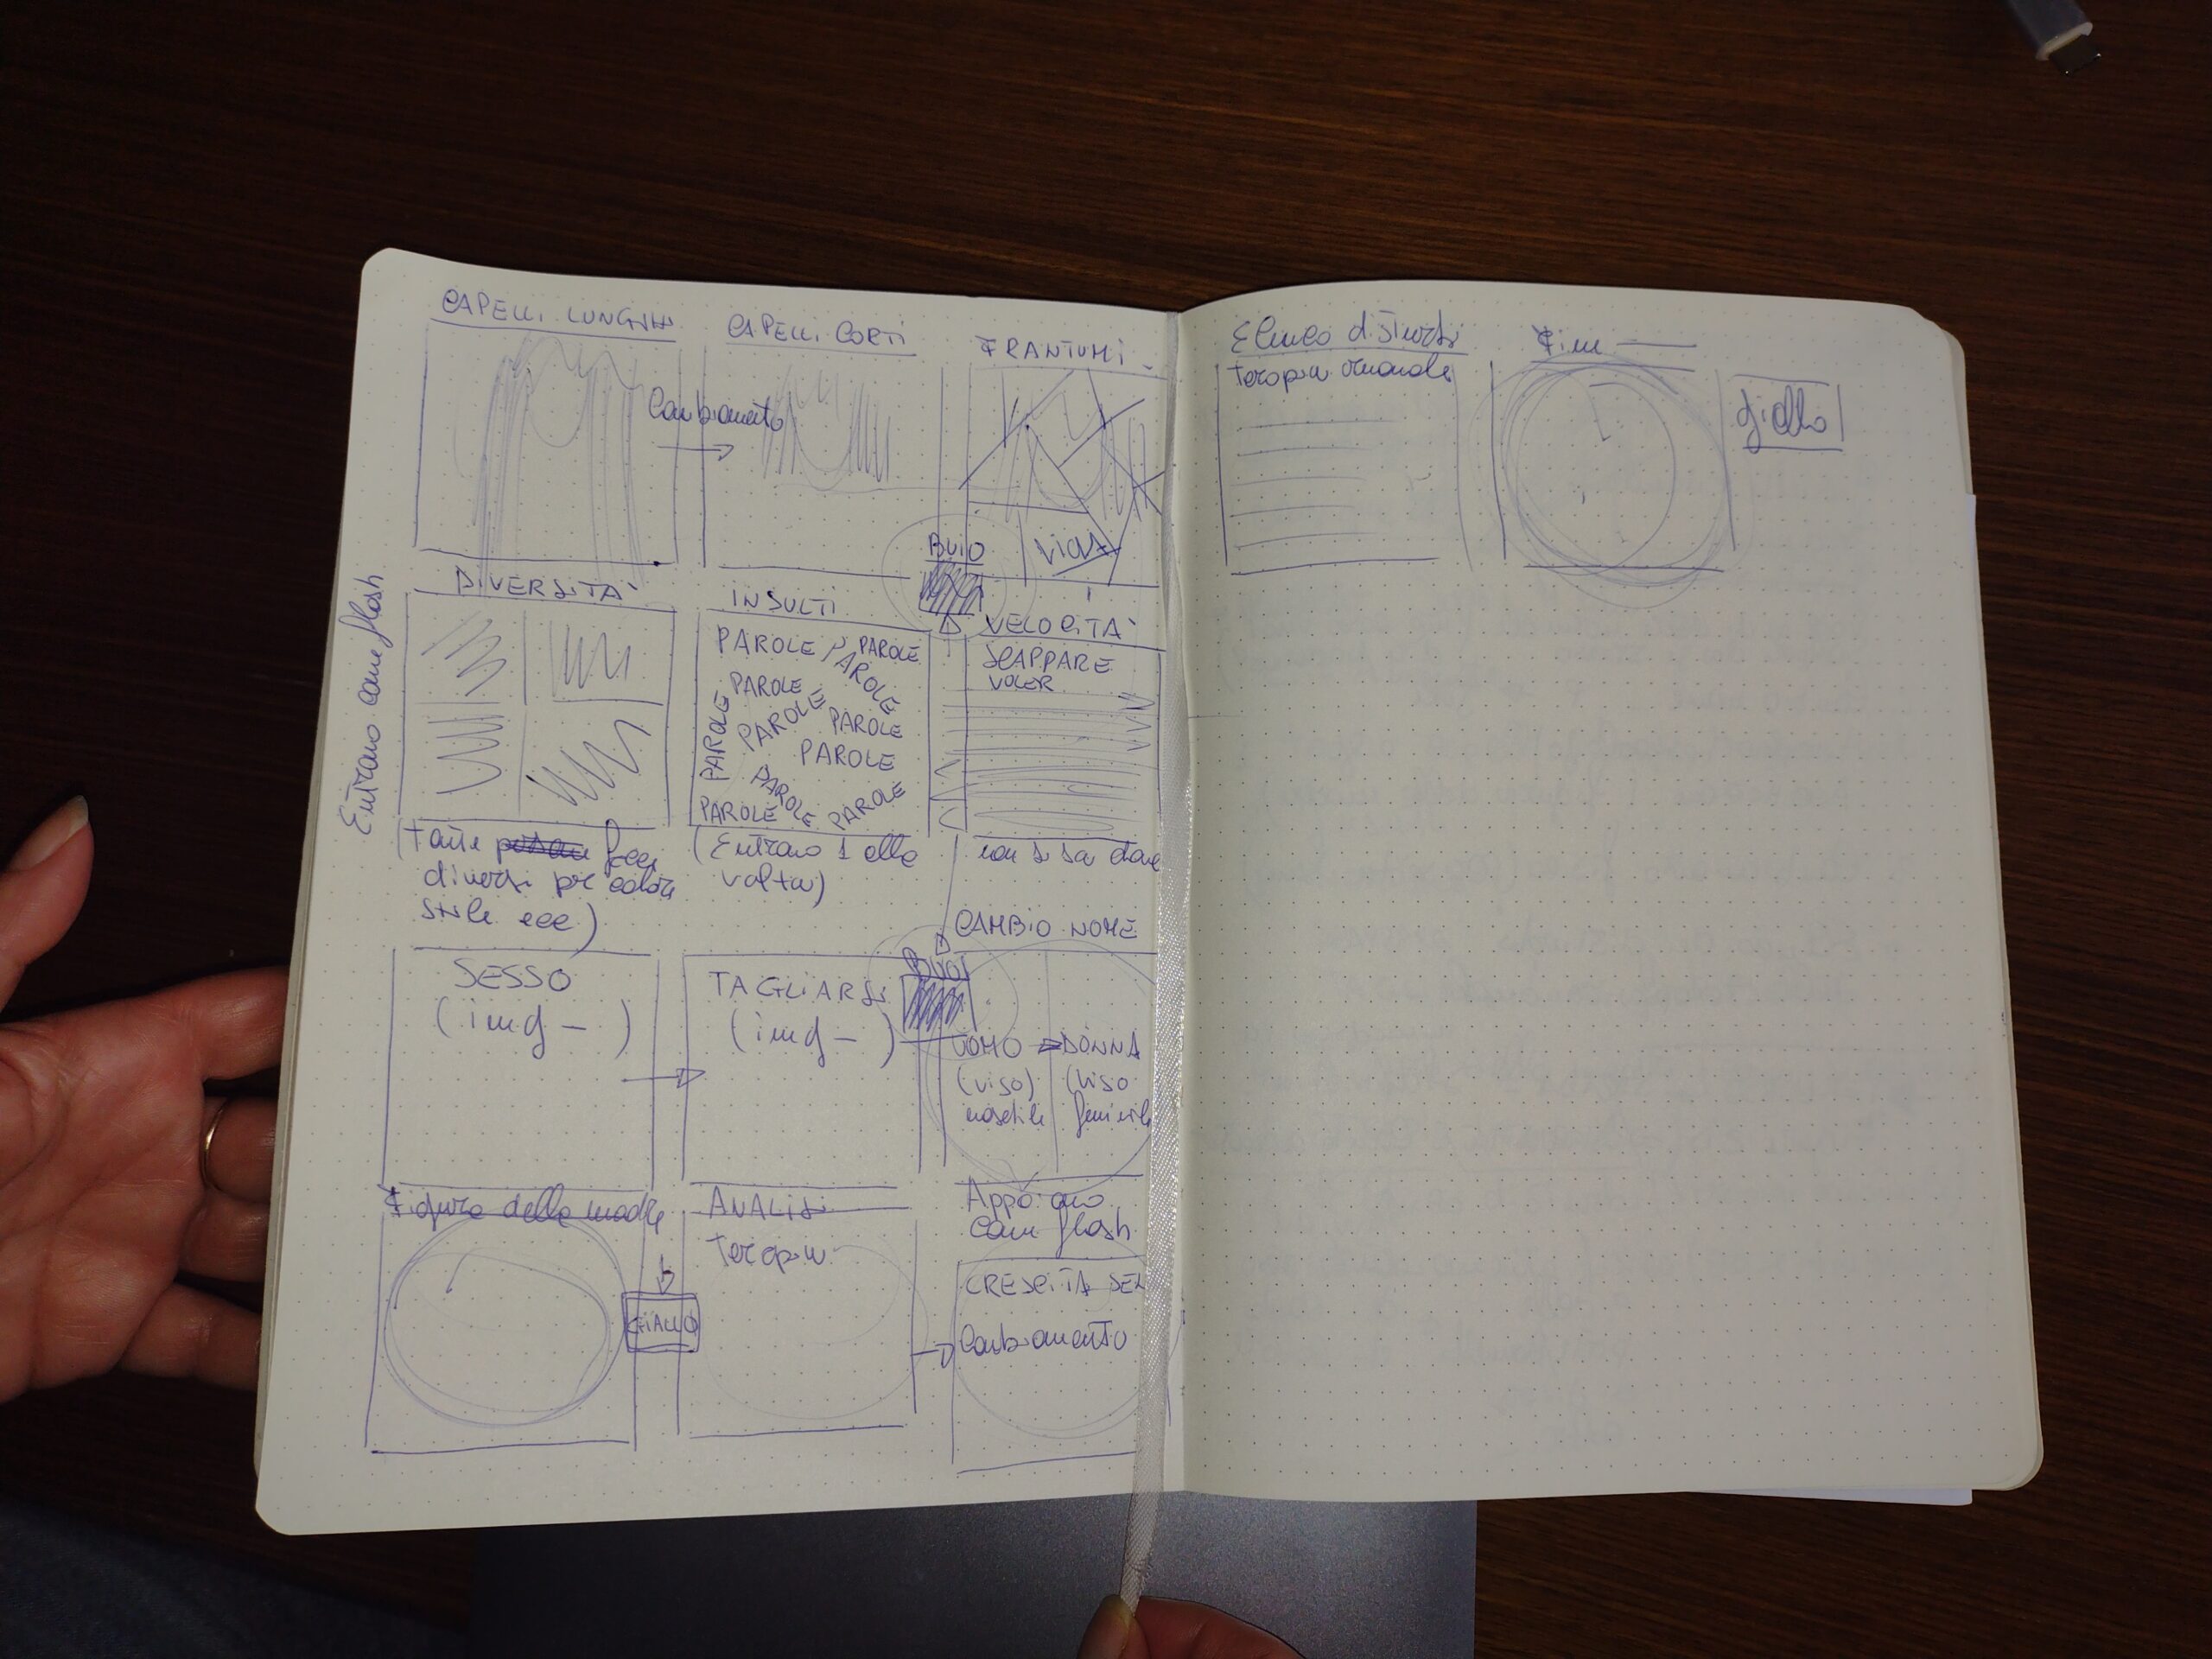 CAPELLI LUNGHI
CAPELLI CORTI
FRANTUMI
Cambiamento
BUIO
VIOLA
Entrano come flash
DIVERSITA'
INSULTI
VELOCITA'
PAROLE PAROLE PAROLE
PAROLE
PAROLE PAROLE PAROLE
PAROLE
PAROLE
PAROLE PAROLE
SCAPPARE
VOLER
(Tante facce
diversi per colore
stile ecc)
(Entrano 1 alla
volta)
non si sa dove
CAMBIO NOME
SESSO
(img - )
TAGLIARSI
(img - )
BUIO
UOMO DONNA
(viso) (viso
maschile femminile
Figura della madre
GIALLO
ANALISI
Terapia
Appaiono
come flash
CRESCITA
Cambiamento
Elenco disturbi
terapia ormonale
Fine
giallo